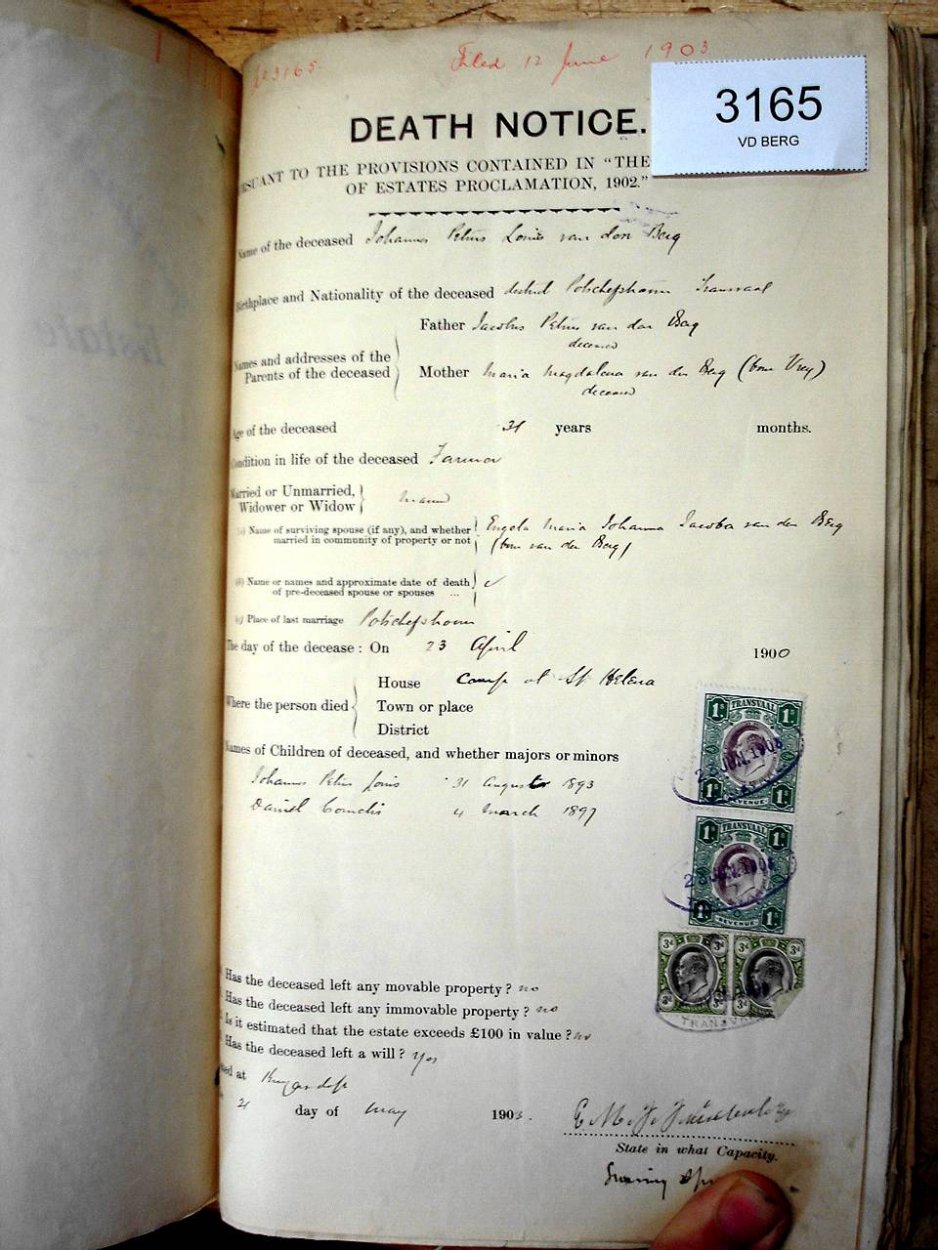 3165
Filed 12 June 1903
3165
VD BERG
DEATH NOTICE.
RSUANT TO THE PROVISIONS CONTAINED IN "THE
OF ESTATES PROCLAMATION, 1902."
Name of the deceased Johannes Petrus Louis van den Berg
Birthplace and Nationality of the deceased district Potchefstroom Transvaal
Names and addresses of the Parents of the deceased
Father Jacobus Petrus van den Berg
deceased
Mother Maria Magdalena van den Berg (born Vrey)
deceased
Age of the deceased 31 years months.
Condition in life of the deceased Farmer
Married or Unmarried, Widower or Widow married
(a) Name of surviving spouse (if any), and whether married in community of property or not
Engela Maria Johanna Jacoba van den Berg
(born van den Berg)
(b) Name or names and approximate date of death of pre-deceased spouse or spouses ...
(c) Place of last marriage Potchefstroom
The day of the decease: On 23 April 1900
Where the person died
House Camp at St Helena
Town or place
District
Names of Children of deceased, and whether majors or minors
Johannes Petrus Louis 31 August 1893
Daniel Cornelis 4 March 1897
TRANSVAAL
1s 1s
REVENUE
TRANSVAAL
1s 1s
REVENUE
3d 3d 3d 3d
TRANSV
Has the deceased left any movable property? no
Has the deceased left any immovable property? no
Is it estimated that the estate exceeds £100 in value? no
Has the deceased left a will? Yes
ed at Krugersdorp
21 day of May 1903.
State in what Capacity.
Surviving Sp